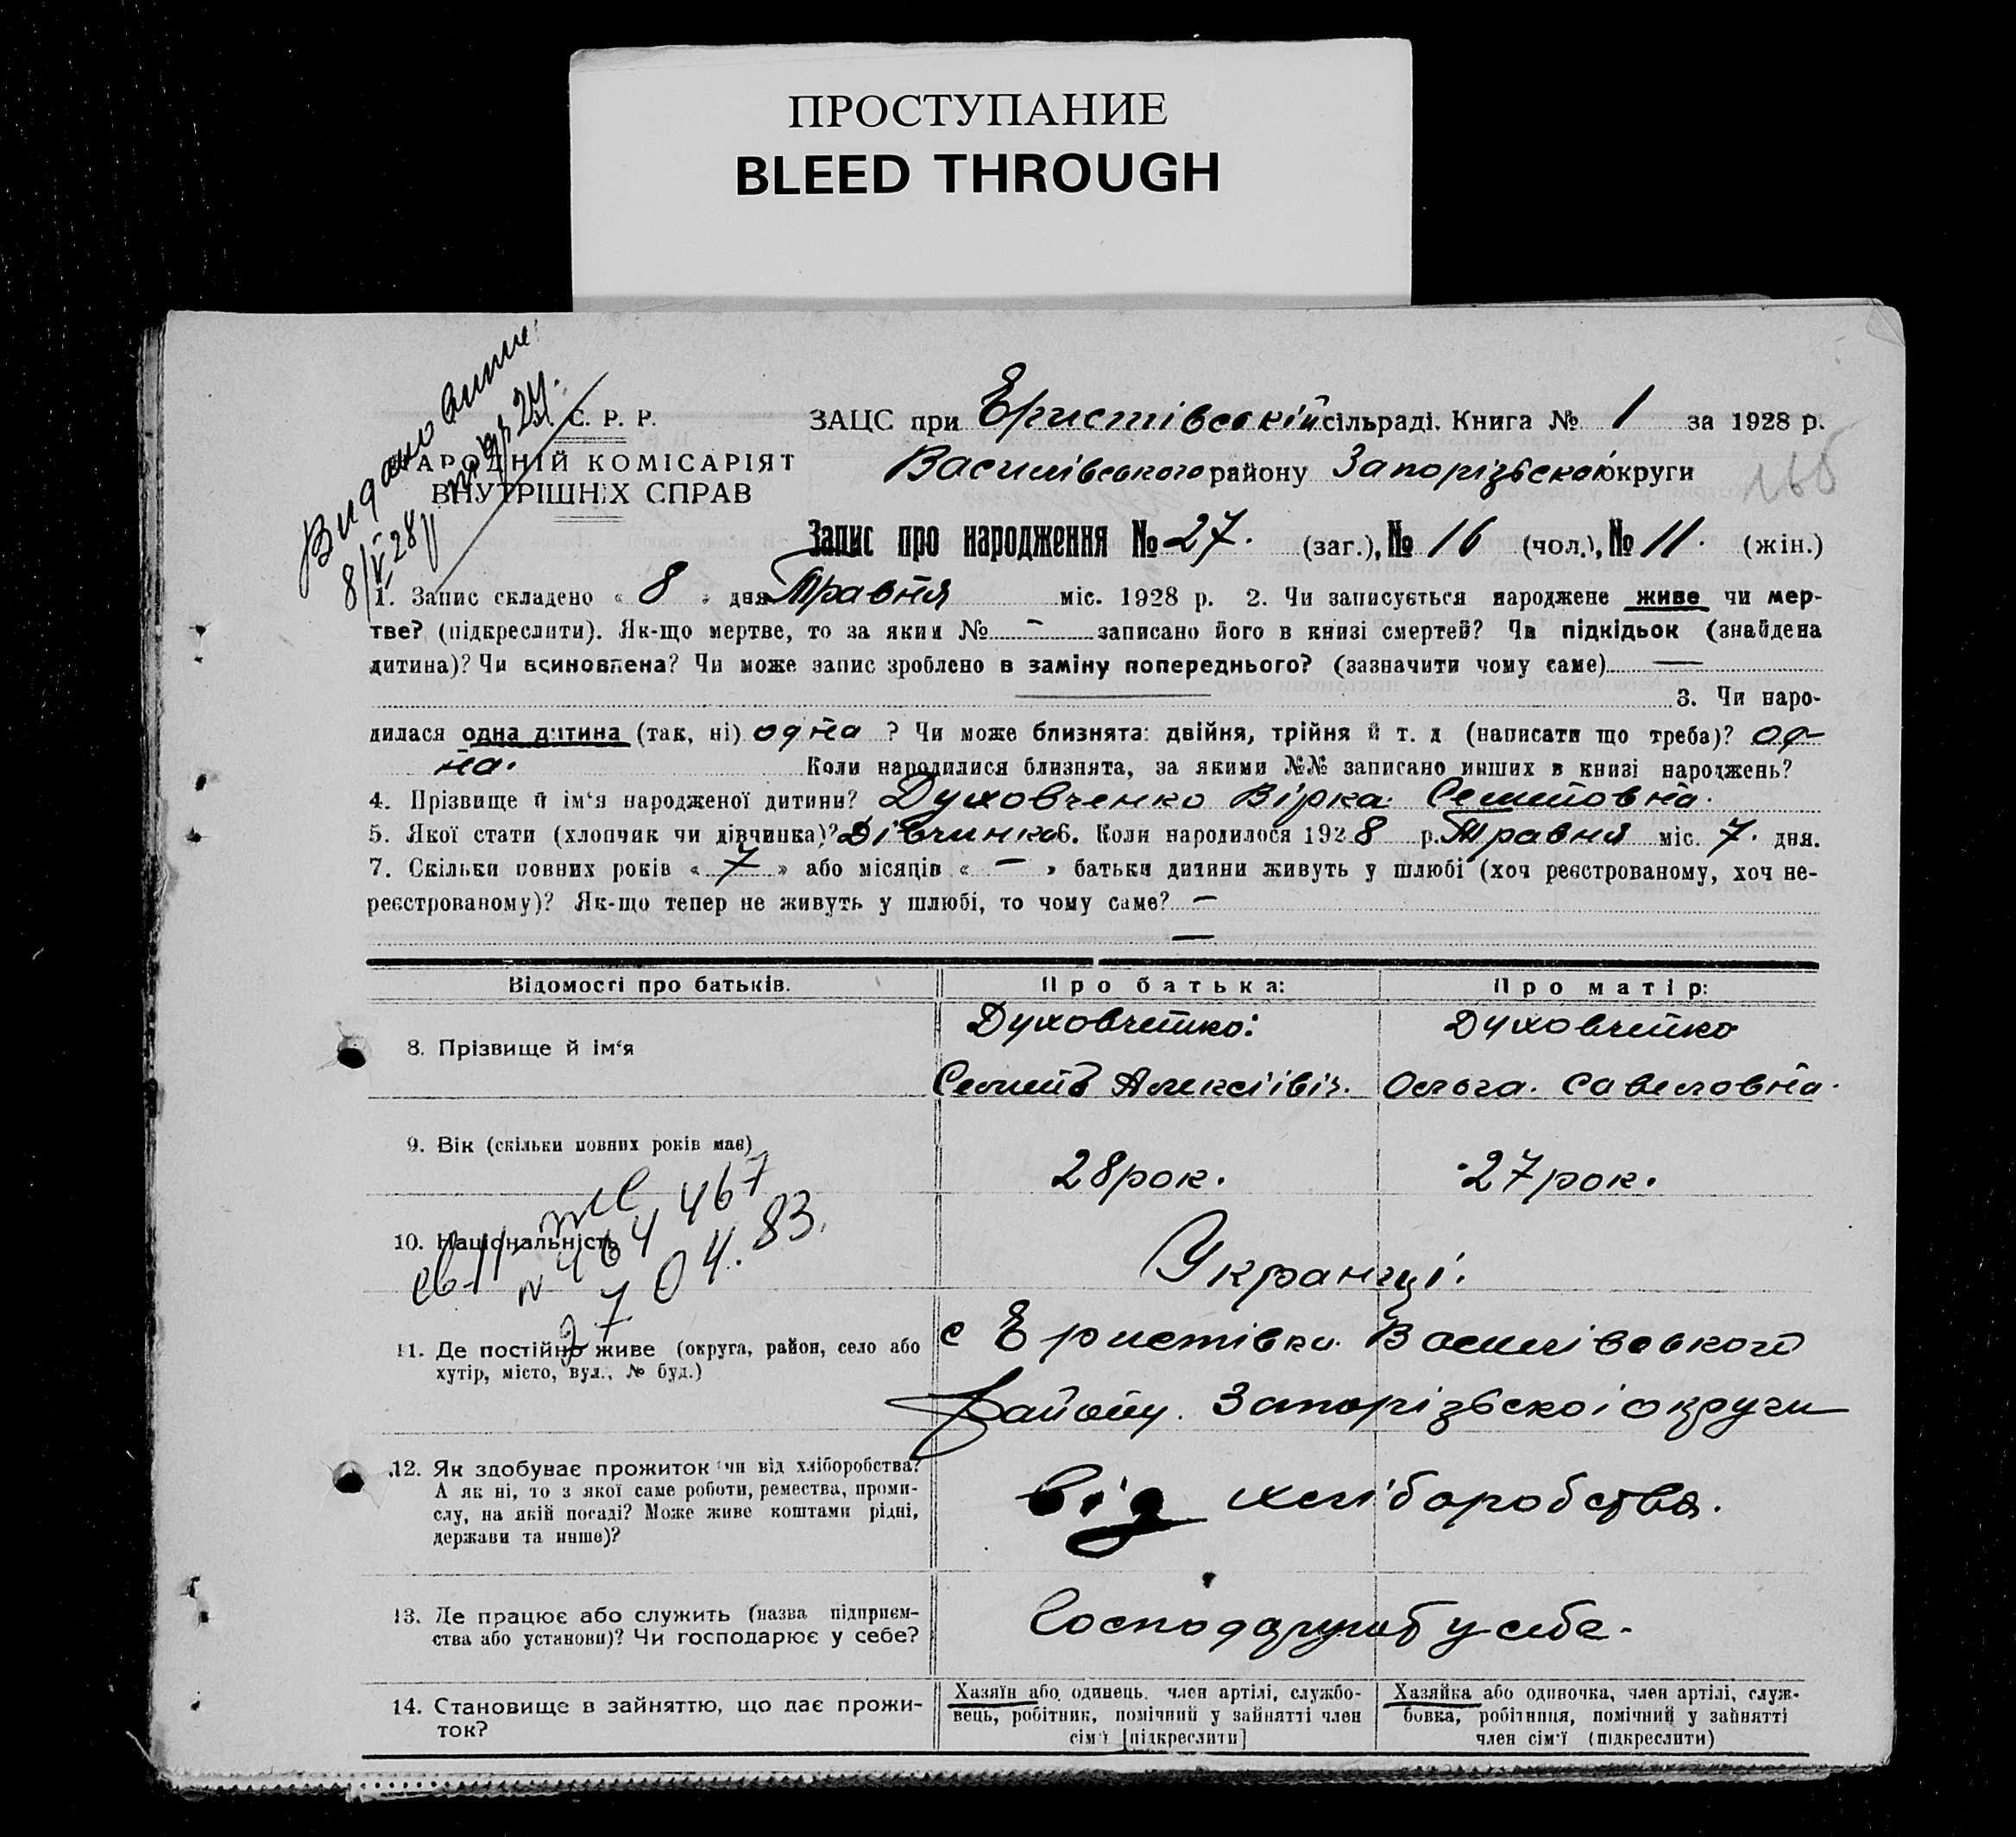 ПРОСТУПАНИЕ
BLEED THROUGH
Видано
8/V 28
С. Р. Р.
АРОДНІЙ КОМІСАРІЯТ
ВНУТРІШНІХ СПРАВ
ЗАЦС при Еристівській сільраді. Книга № 1 за 1928 р.
Василівського району Запорізьскоі округи
166
Запис про народження № 27. (заг.), № 16 (чол.), № 11. (жін.)
1. Запис складено « 8 » дня Травня міс. 1928 р. 2. Чи записується народжене живе чи мер-
тве? (підкреслити). Як-що мертве, то за яким № – записано його в книзі смертей? Чи підкідьок (знайдена
дитина)? Чи всиновлена? Чи може запис зроблено в заміну попереднього? (зазначити чому саме) —
3. Чи наро-
дилася одна дитина (так, ні) одна ? Чи може близнята: двійня, трійня й т. д (написати що треба)? од-
на. Коли народилися близнята, за якими №№ записано инших в книзі народжень?
4. Прізвище й ім‘я народженої дитини? Духовченко Вірка Семеновна.
5. Якої статі (хлопчик чи дівчинка)? Дівчинка 6. Коли народилося 1928 р. Травня міс. 7. дня.
7. Скільки повних років « 7 » або місяців « – » батьки дитини живуть у шлюбі (хоч реєстрованому, хоч не-
реєстрованому)? Як-що тепер не живуть у шлюбі, то чому саме? –
—
Відомості про батьків. Про батька: Про матір:
8. Прізвище й ім‘я
Духовченко: Духовченко
Семен Алексіівіч. Ольга. Савеловна.
9. Вік (скільки повних років має)
28 рок. 27 рок.
467
10. Національність
04.83.
Украінці.
11. Де постійно живе (округа, район, село або
хутір, місто, вул., № буд.)
с Еристівки Василівського
Району. Запорізьскоі округи
12. Як здобуває прожиток чи від хліборобства?
А як ні, то з якої саме роботи, ремества, проми-
слу, на якій посаді? Може живе коштами рідні,
держави та инше)?
від хліборобства.
13. Де працює або служить (назва підприєм-
ства або установи)? Чи господарює у себе?
у себе.
14. Становище в зайняттю, що дає прожи-
ток?
Хазяїн або одинець. член артілі, службо-
вець, робітник, помічний у зайнятті член
сім‘ї [підкреслити]
Хазяйка або одиночка, член артілі, служ-
бовка, робітниця, помічний у зайнятті
член сім‘ї (підкреслити)